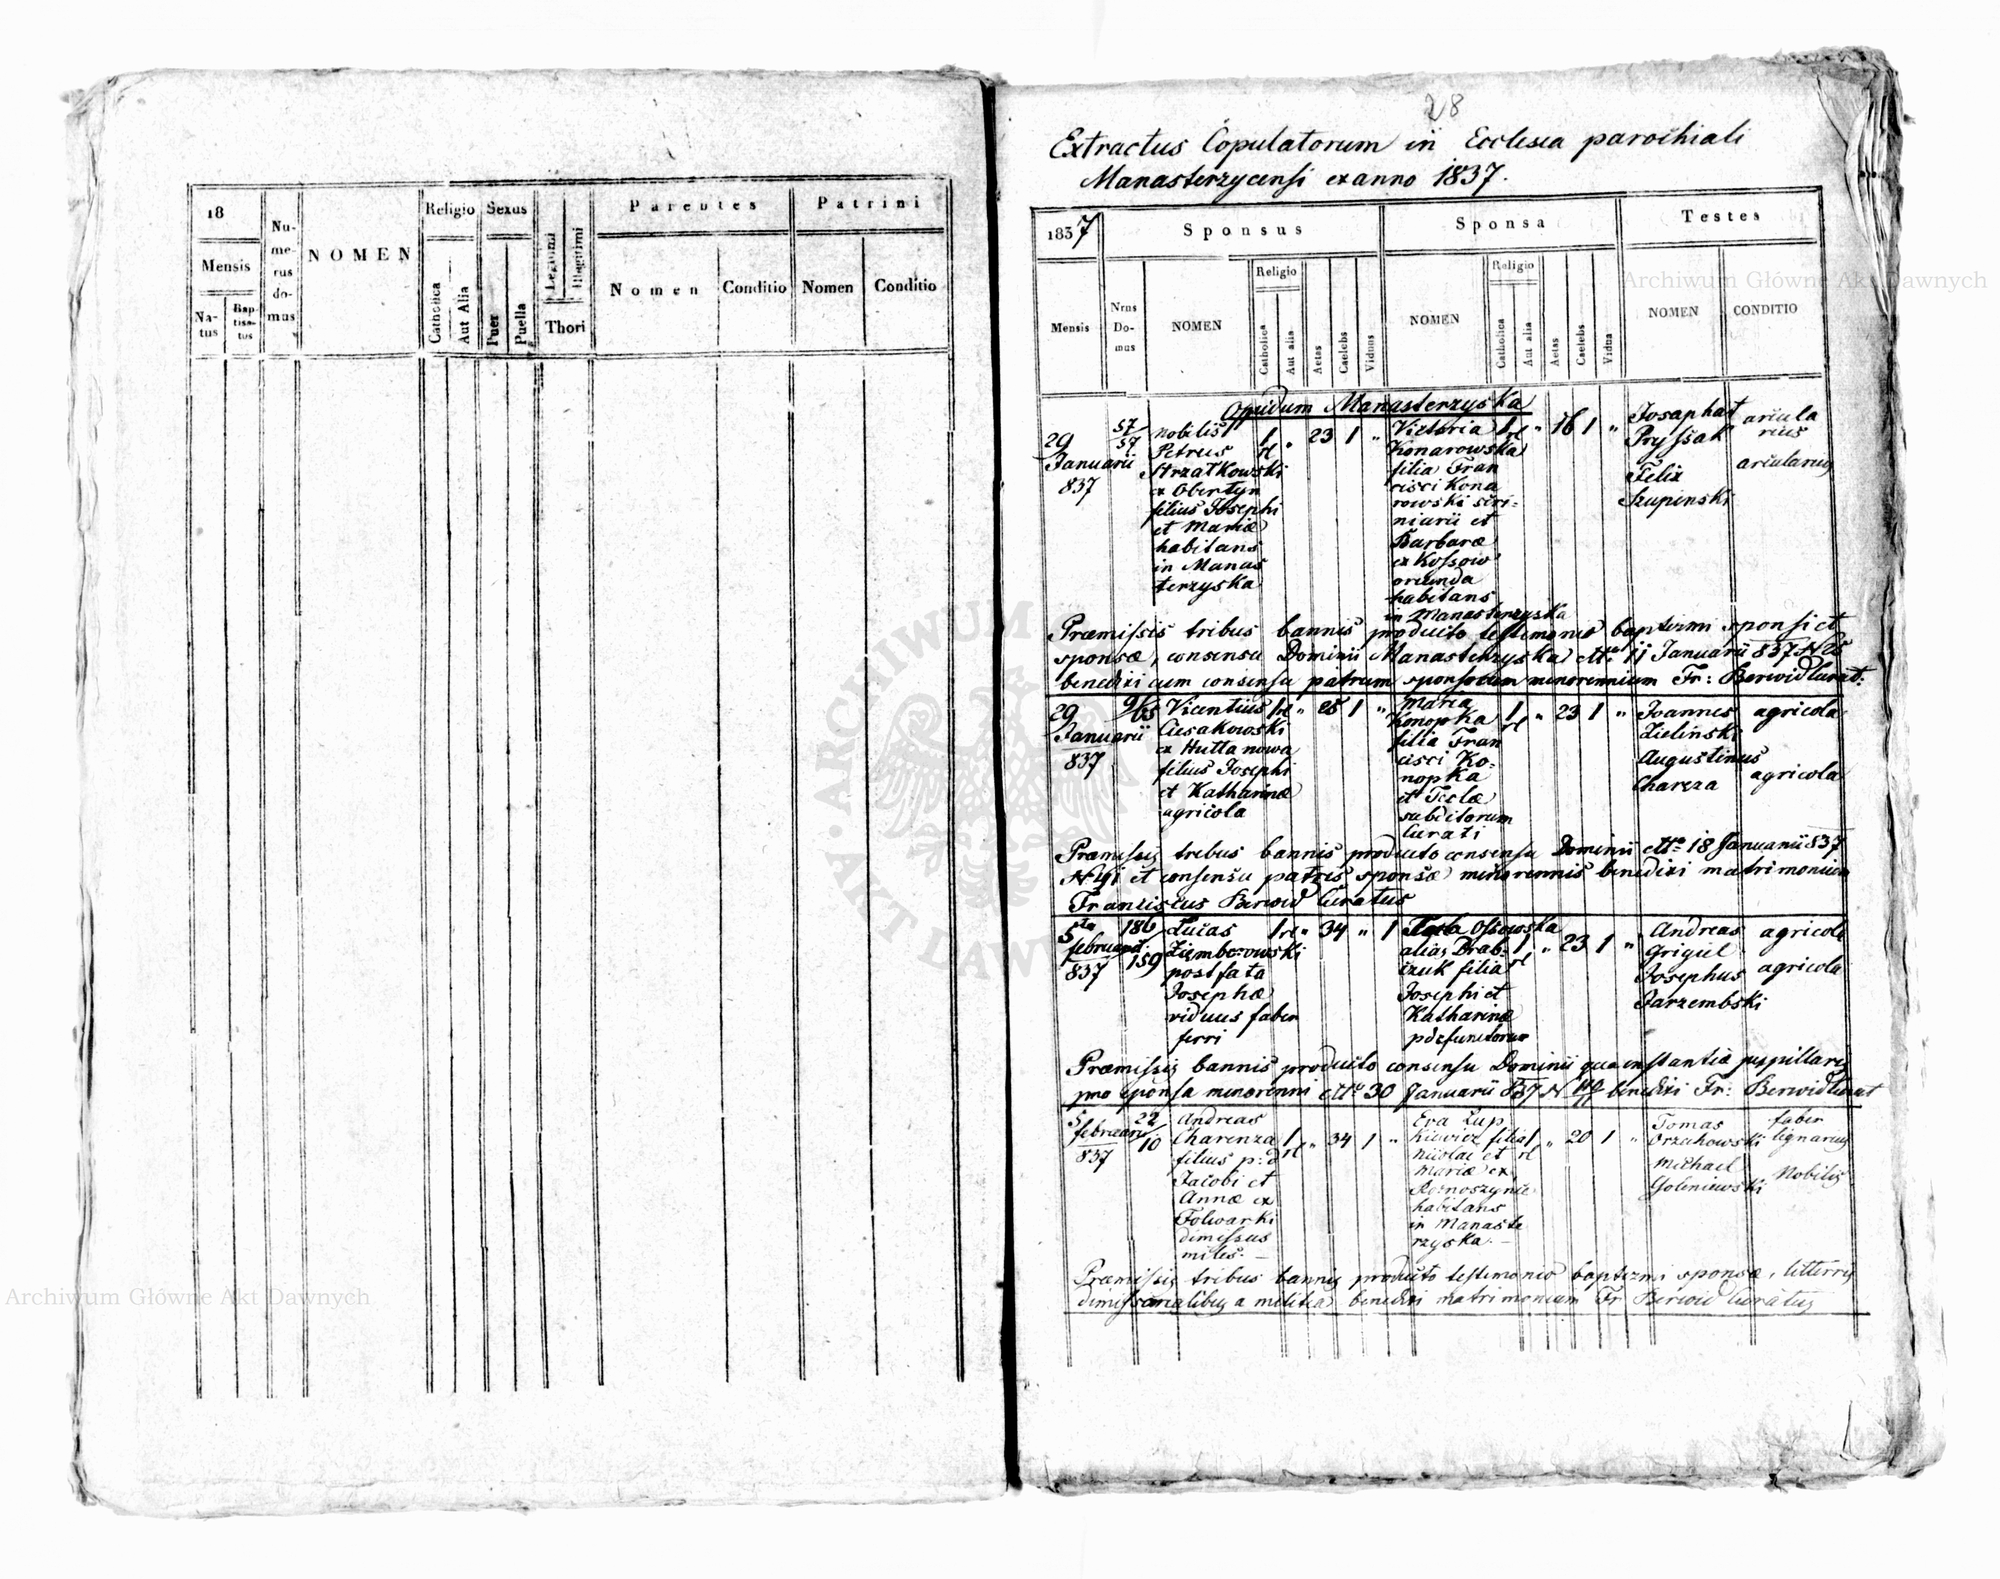 18
Mensis
Na-
tus
Bap-
tisa-
tus
Nu-
me-
rus
do-
mus
NOMEN
Religio
Catholica
Aut Alia
Sexus
Puer
Puella
Legitimi
Illegitimi
Thori
Parentes
Nomen
Conditio
Patrini
Nomen
Conditio
28
Extractus Copulatorum in Ecclesia parochiali
Manasterzycensi ex anno 1837.
1837
Sponsus
Sponsa
Testes
Mensis
Nrus
Do-
mus
NOMEN
Religio
Catholica
Aut alia
Aetas
Caelebs
Viduus
NOMEN
Religio
Catholica
Aut alia
Aetas
Caelebs
Vidua
NOMEN
CONDITIO
Opidum Manasterzyska
29
Januarii
837
57
57
nobilis
Petrus
Strzałkowski
ex Obertyn
filius Josephi
et Mariæ
habitans
in Manas
terzyska
1 rl " 23 1 "
Victoria
Konarowska
filia Fran
cisci Kona
rowski scri-
niarii et
Barbaræ
ex Kossow
oriunda
habitans
in Manasterzyska
1 rl " 16 1 "
Josaphat
Pryssak
Felix
Szupinski
arcula
rius
arcularius
Præmissis tribus bannis producto testimonio baptizmi sponsi et
sponsæ, consensu Dominii Manasterzyska dtto 11 Januarii 837 N 26
benedixi cum consensu patrum sponsorum minorennium Fr: Berwid Curat:
29
Januarii
837
96
5
Vicentius
Ciesakowski
ex Hutta nowa
filius Josephi
et Katharinæ
agricola
1 rl " 25 1 "
Maria
Konopka
filia Fran
cisci Ko-
nopka
et Teclæ
subditorum
Curati
1 rl " 23 1 "
Joannes
Zielinski
Augustinus
Chareza
agricola
agricola
Præmissis tribus bannis producto consensu Dominii dtto 18 Januarii 837
N 41 et consensu patris sponsæ minorennis benedixi matrimonium
Franciscus Berwid Curatus
5ta
februarii
837
186
159
Lucas
Ziemborowski
post fata
Josephæ
viduus faber
ferri
1 rl " 34 " 1
Tecla Ossowska
alias Drab-
czuk filia
Josephi et
Katharinæ
pdefunctorum
1 rl " 23 1 "
Andreas
Grigiel
Josephus
Jarzembski
agricola
agricola
Præmissis bannis producto consensu Dominii qua instantiæ pupillaris
pro sponsa minorenni dtto 30 Januarii 837 N benedixi Fr: Berwid Curat
5
februarii
837
22
10
Andreas
Charenza
filius p:d
Jacobi et
Annæ ex
Folwarki
dimissus
miles. —
1 rl " 34 1 "
Eva Łup
kiewicz filia
Nicolai et
Mariæ ex
habitans
in Manaste
rzyska. —
1 rl " 20 1 "
Tomas
Orzechowski
Michael
Goleniewski
faber
lignarius
Nobilis
Præmissis tribus bannis producto testimonio baptizmi sponsæ, litterris
dimissorialibus a militia benedixi matrimonium Fr Berwid Curatus
Archiwum Główne Akt Dawnych
Archiwum Główne Akt Dawnych
ARCHIWUM
AKT DAWNYCH